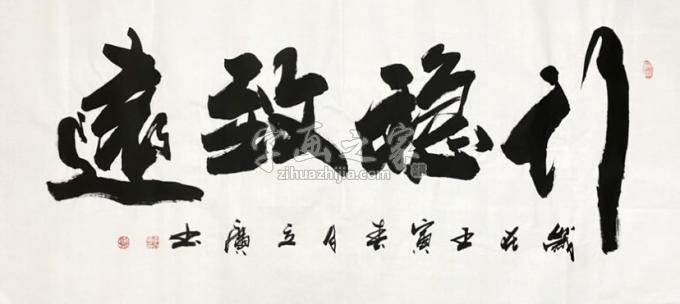 行稳致遠
歲在壬寅春月立廣书
字画之家
zihuazhijia.com